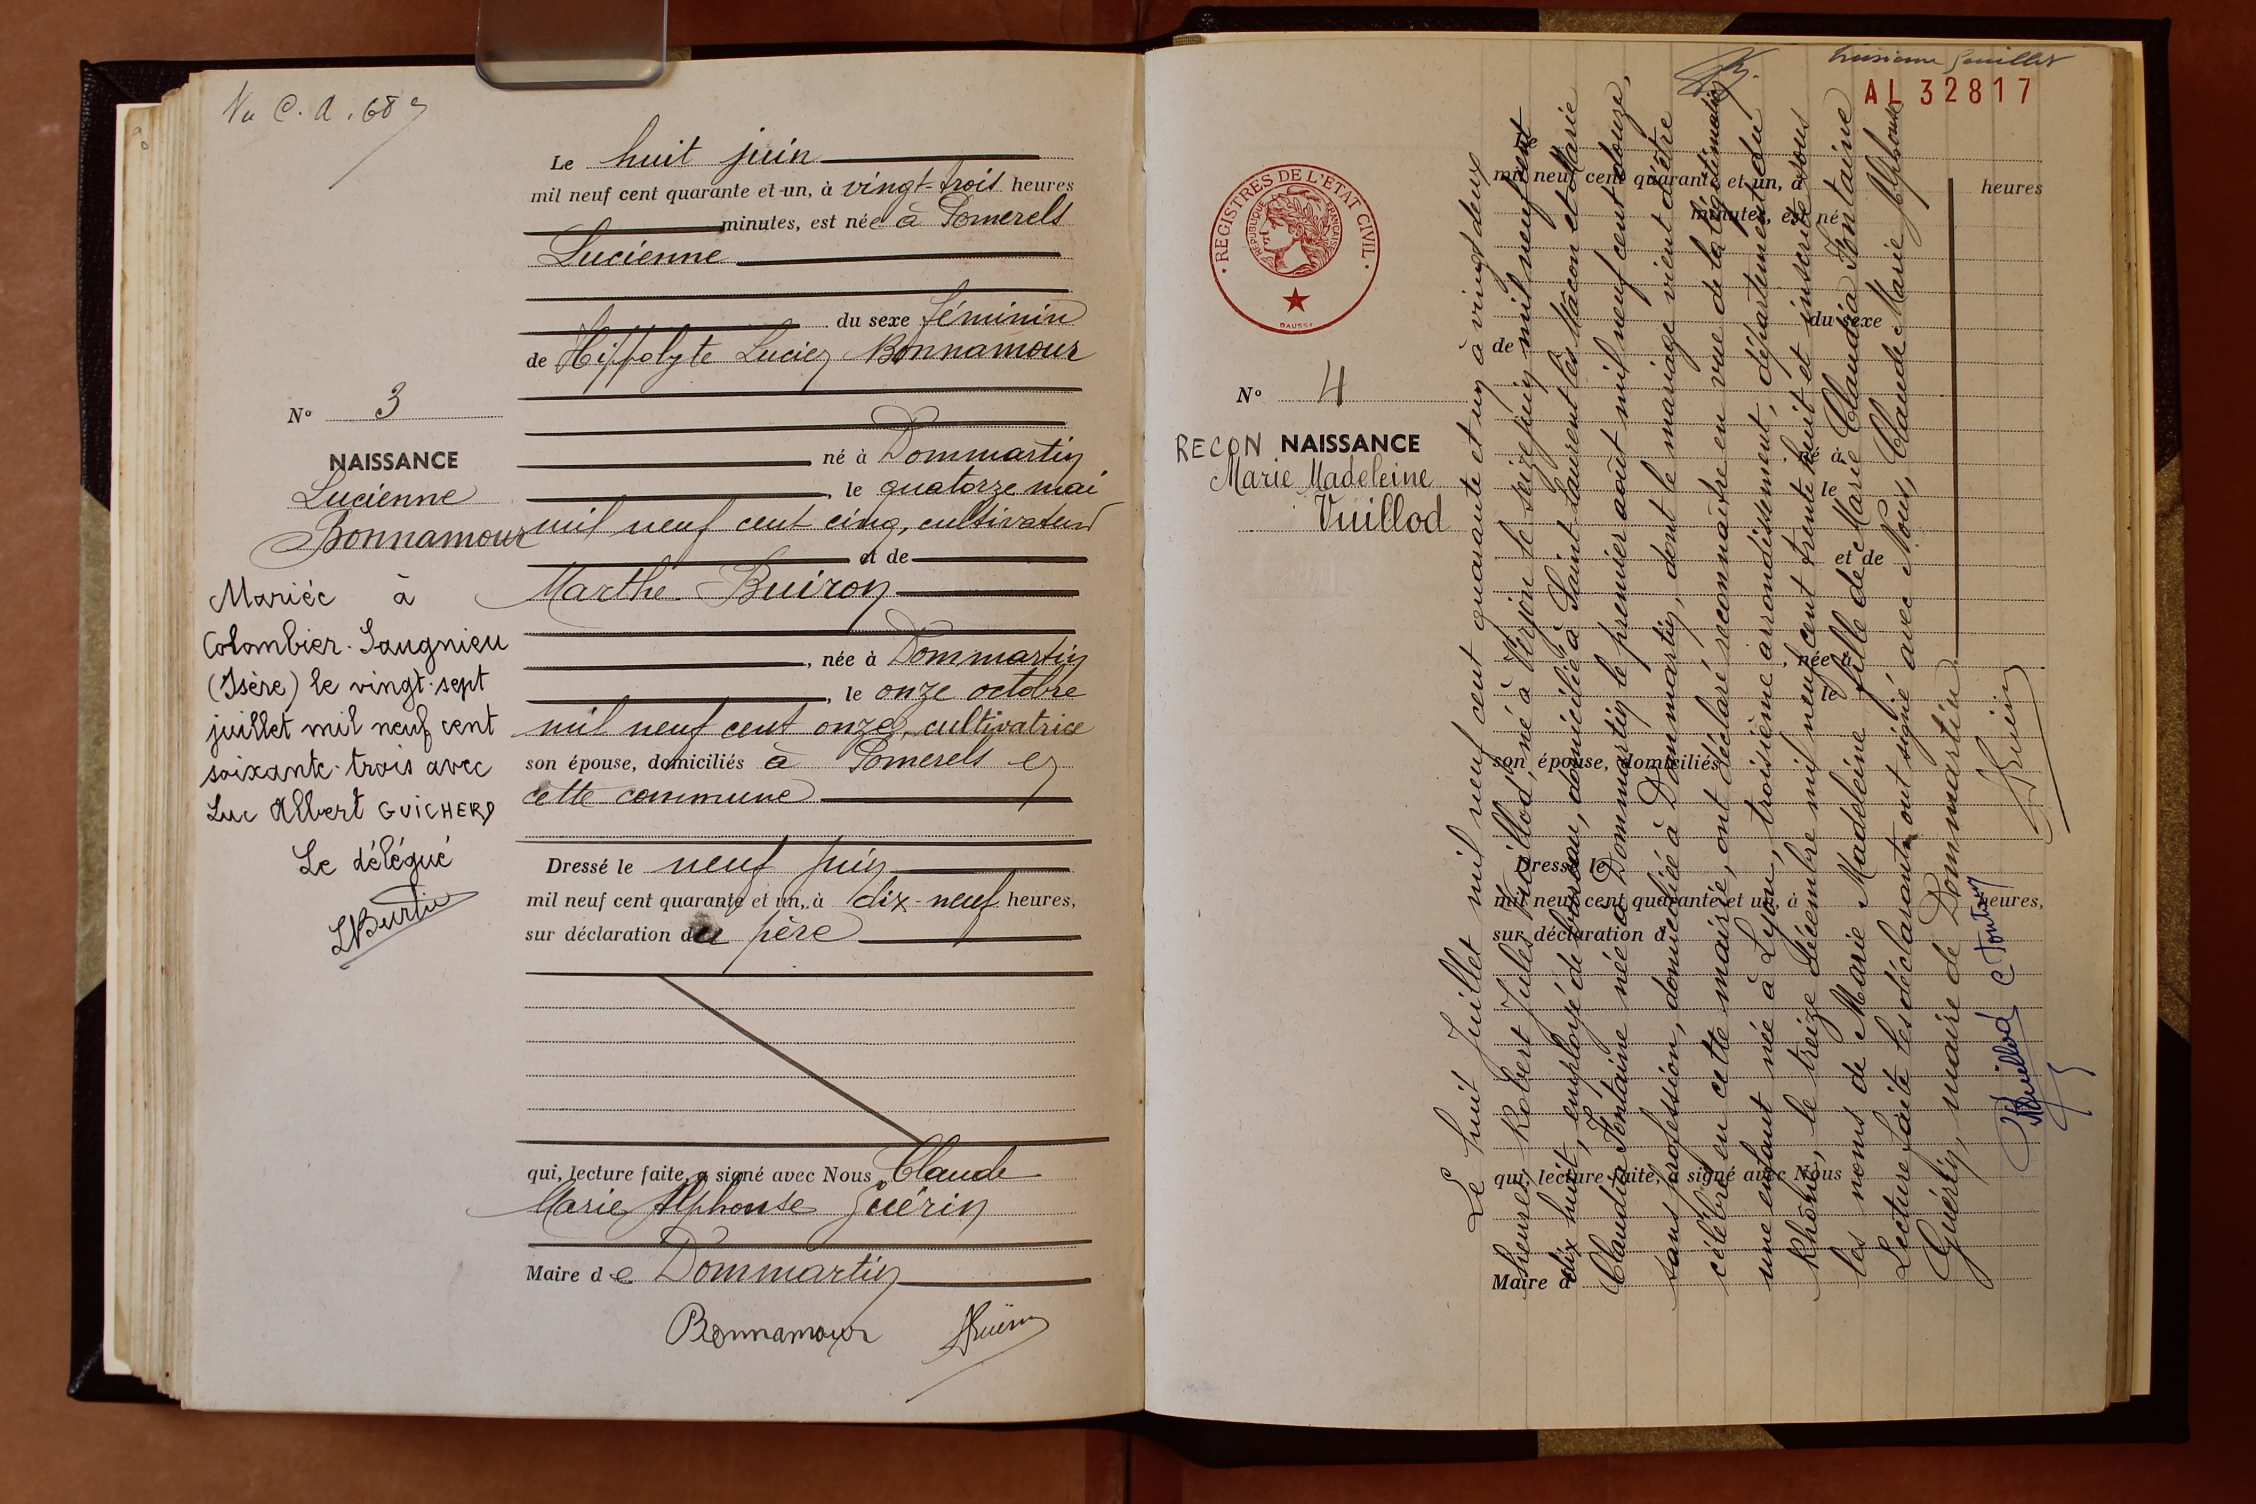 Vu C. A. 687
Le huit juin
mil neuf cent quarante et un, à vingt-trois heures
minutes, est née à Pomerels
Lucienne
du sexe féminin
de Hippolyte Lucien Bonnamour
né à Dommartin
, le quatorze mai
mil neuf cent cinq, cultivateur
et de
Marthe Buiron
, née à Dommartin
, le onze octobre
mil neuf cent onze, cultivatrice
son épouse, domiciliés à Pomerels en
cette commune
Dressé le neuf juin
mil neuf cent quarante et un, à dix-neuf heures,
sur déclaration du père
qui, lecture faite, a signé avec Nous Claude
Marie Alphonse Guérin
Maire de Dommartin
Bonnamour Guérin
No 3
NAISSANCE
Lucienne
Bonnamour
Mariée à
Colombier-Saugnieu
(Isère) le vingt-sept
juillet mil neuf cent
soixante-trois avec
Luc Albert GUICHERD
Le délégué
feuillet
AL 32817
REGISTRES DE L'ETAT CIVIL
REPUBLIQUE FRANÇAISE
No 4
RECON NAISSANCE
Marie Madeleine
Vuillod
Le huit Juillet mil neuf cent quarante et un à vingt deux
heures Robert Jules Vuillod, né à Verjon le seize juin mil neuf cent
dix huit, employé de bureau, domicilié à Saint Laurent lès Mâcon et Marie
Claudia Fontaine née à Dommartin le premier août mil neuf cent douze,
sans profession, domiciliée à Dommartin, dont le mariage vient d'être
célébré en cette mairie, ont déclaré reconnaître en vue de la légitimation
une enfant née à Lyon, troisième arrondissement, département du
Rhône, le treize décembre mil neuf cent trente huit et inscrite sous
les noms de Marie Madeleine fille de Marie Claudia Fontaine
Lecture faite les déclarants ont signé avec Nous, Claude Marie Alphonse
Guérin, maire de Dommartin
Vuillod C Fontaine Guérin
Le
mil neuf cent quarante et un, à heures
minutes, est né
du sexe
de
né à
le
et de
, née à
le
son épouse, domiciliés
Dressé le
mil neuf cent quarante et un, à heures,
sur déclaration d
qui, lecture faite, a signé avec Nous
Maire d